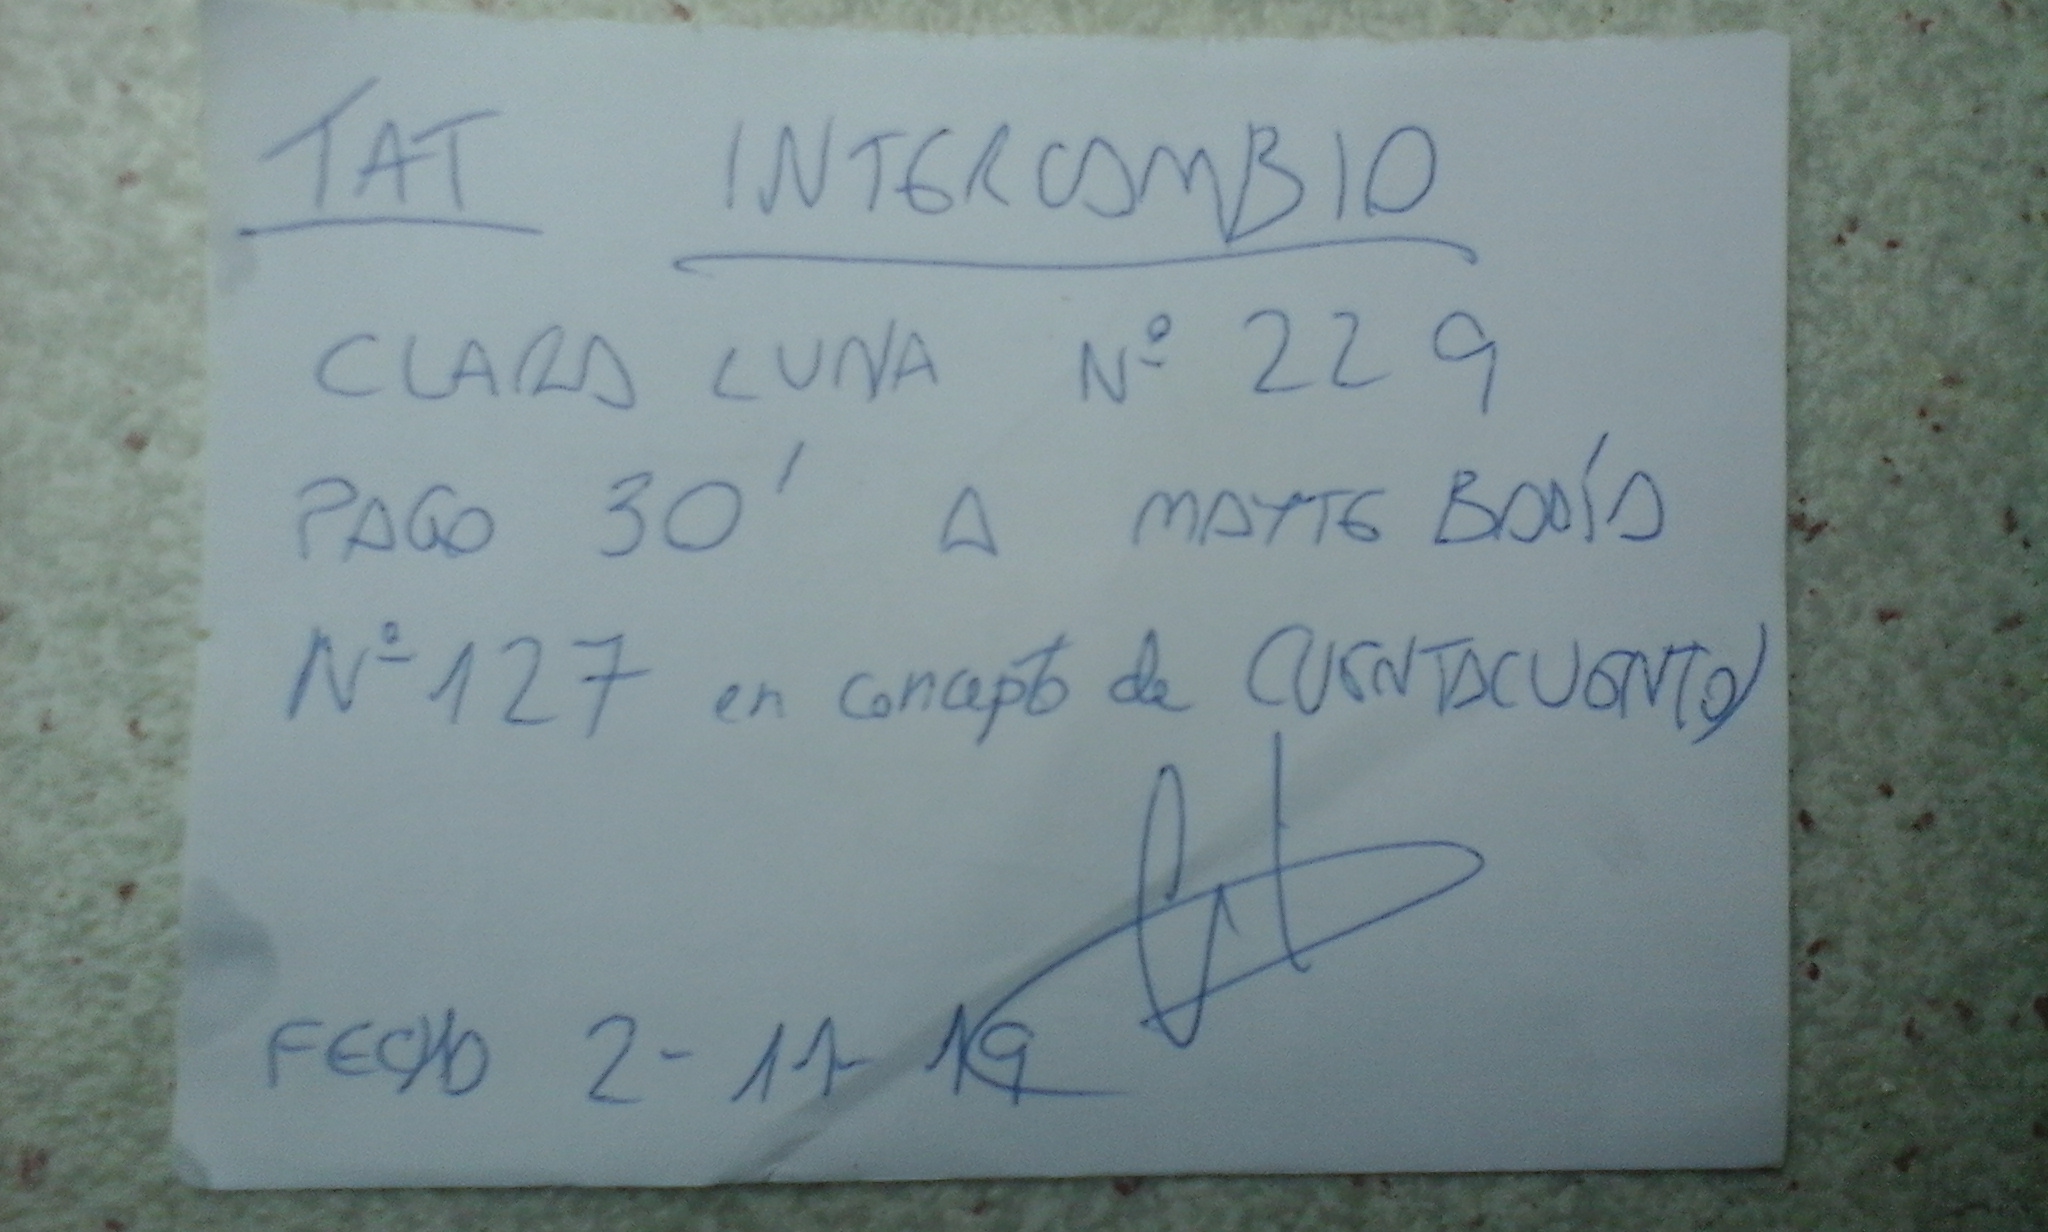 TAT INTERCAMBIO
CLARA LUNA Nº 229
PAGO 30' A MAYTE BADÍA
Nº 127 en concepto de CUENTACUENTOS
FECHA 2-11-19